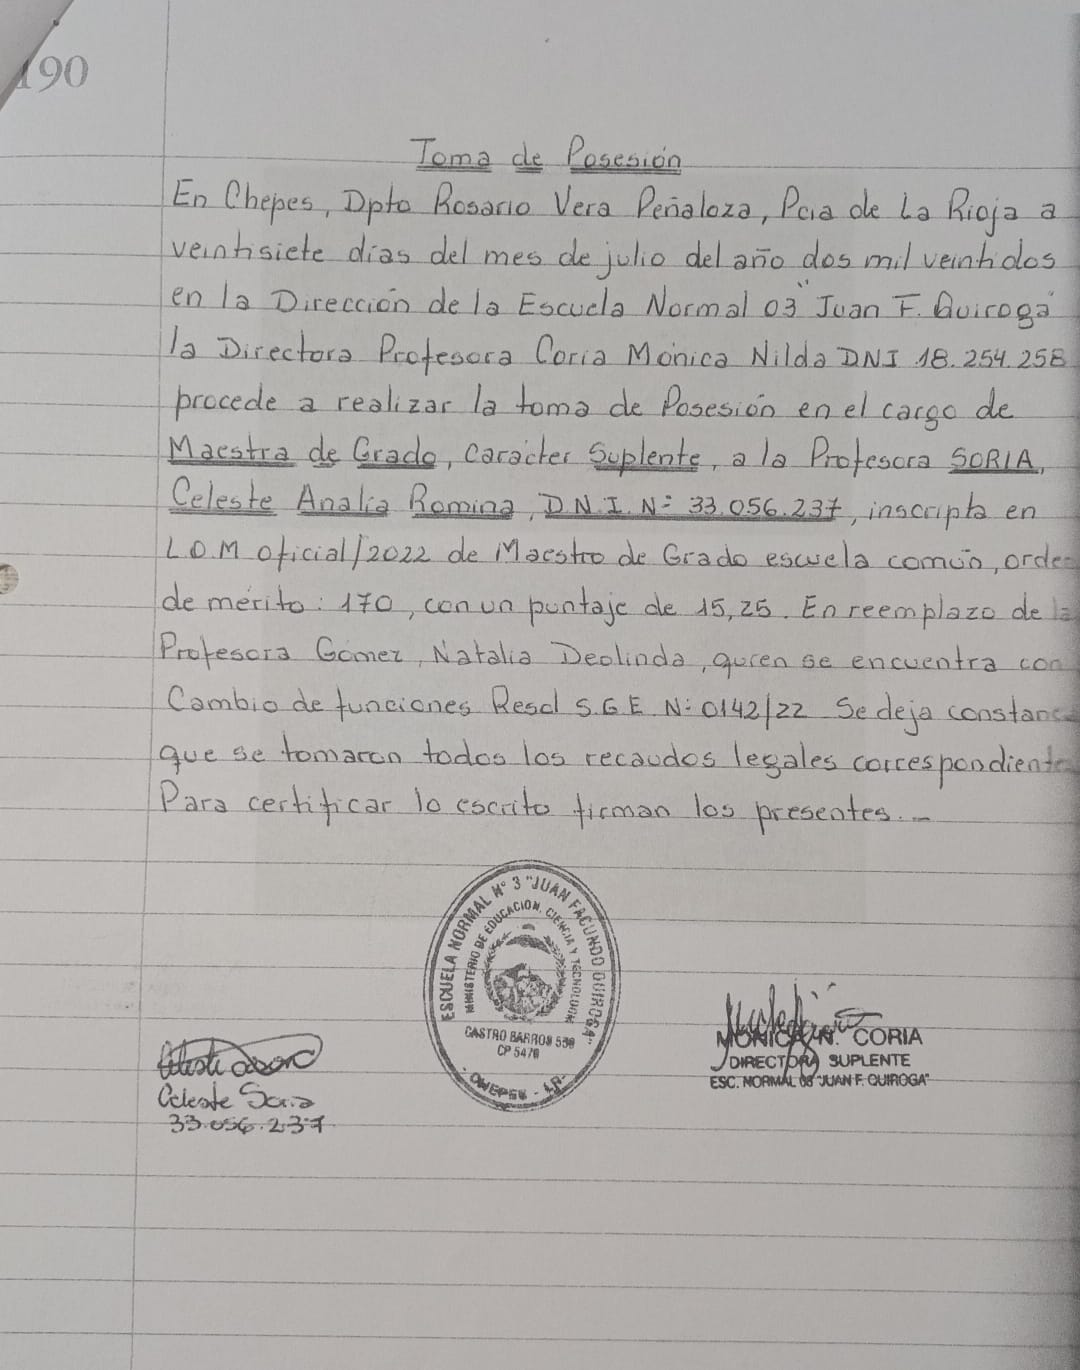 190
Toma de Posesión
En Chepes, Dpto Rosario Vera Peñaloza, Pcia de La Rioja a
veintisiete días del mes de julio del año dos mil veintidos
en la Dirección de la Escuela Normal 03 "Juan F. Quiroga"
la Directora Profesora Coria Mónica Nilda DNI 18.254.258
procede a realizar la toma de Posesión en el cargo de
Maestra de Grado, caracter Suplente, a la Profesora SORIA,
Celeste Analia Romina, D.N.I. Nº 33.056.237, inscripta en
L.O.M oficial/2022 de Maestro de Grado escuela común, orden
de mérito: 170, con un puntaje de 15,25. En reemplazo de la
Profesora Gómez, Natalia Deolinda, quien se encuentra con
Cambio de funciones Resol S.G.E. Nº 0142/22 Se deja constanc
que se tomaron todos los recaudos legales correspondiente
Para certificar lo escrito firman los presentes. –
ESCUELA NORMAL Nº 3 "JUAN FACUNDO QUIROGA"
MINISTERIO DE EDUCACION, CIENCIA Y TECNOLOGIA
CASTRO BARROS 550
CP 5470
- CHEPES - LR-
Celeste Soria
33.056.237
MONICA N. CORIA
DIRECTORA SUPLENTE
ESC. NORMAL 03 "JUAN F. QUIROGA"